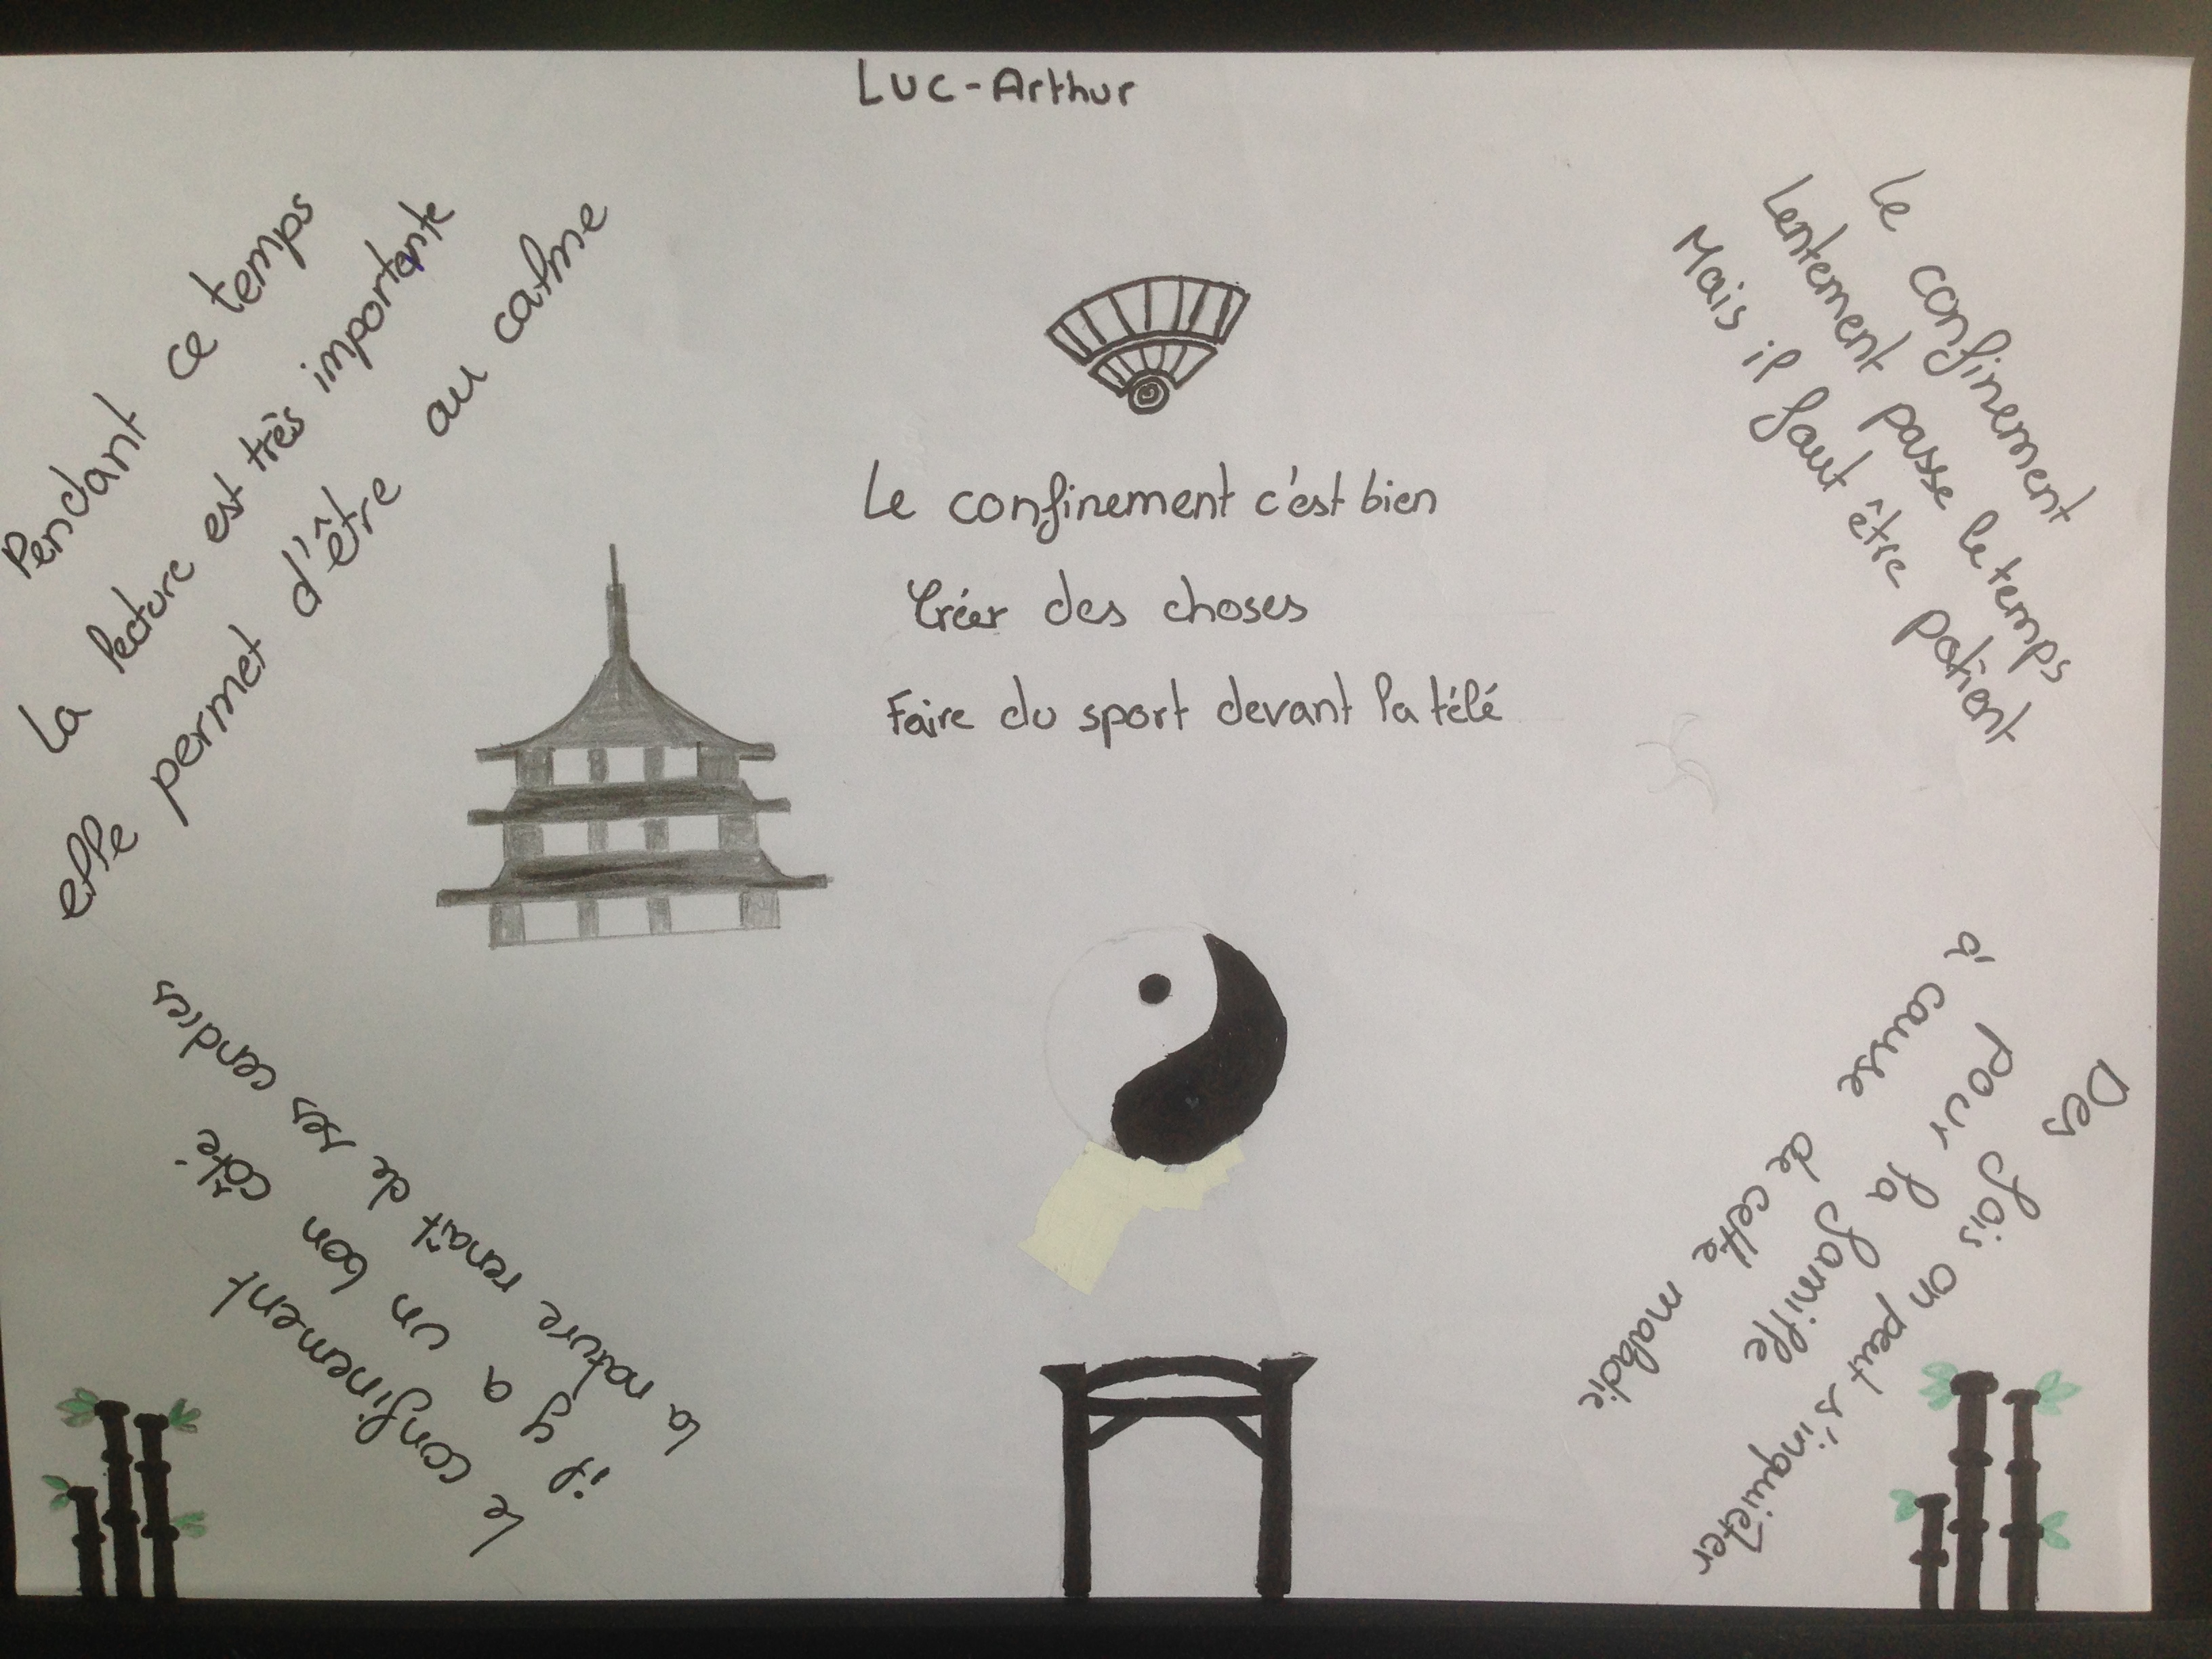 Luc-Arthur
Pendant ce temps
La lecture est très importante
elle permet d'être au calme
Le confinement
Lentement passe le temps
Mais il faut être patient
Le confinement c'est bien
Créer des choses
Faire du sport devant la télé
Le confinement
il y a un bon côté
la nature renaît de ses cendres
Des fois on peut s'inquièter
pour la famille
à cause de cette maladie